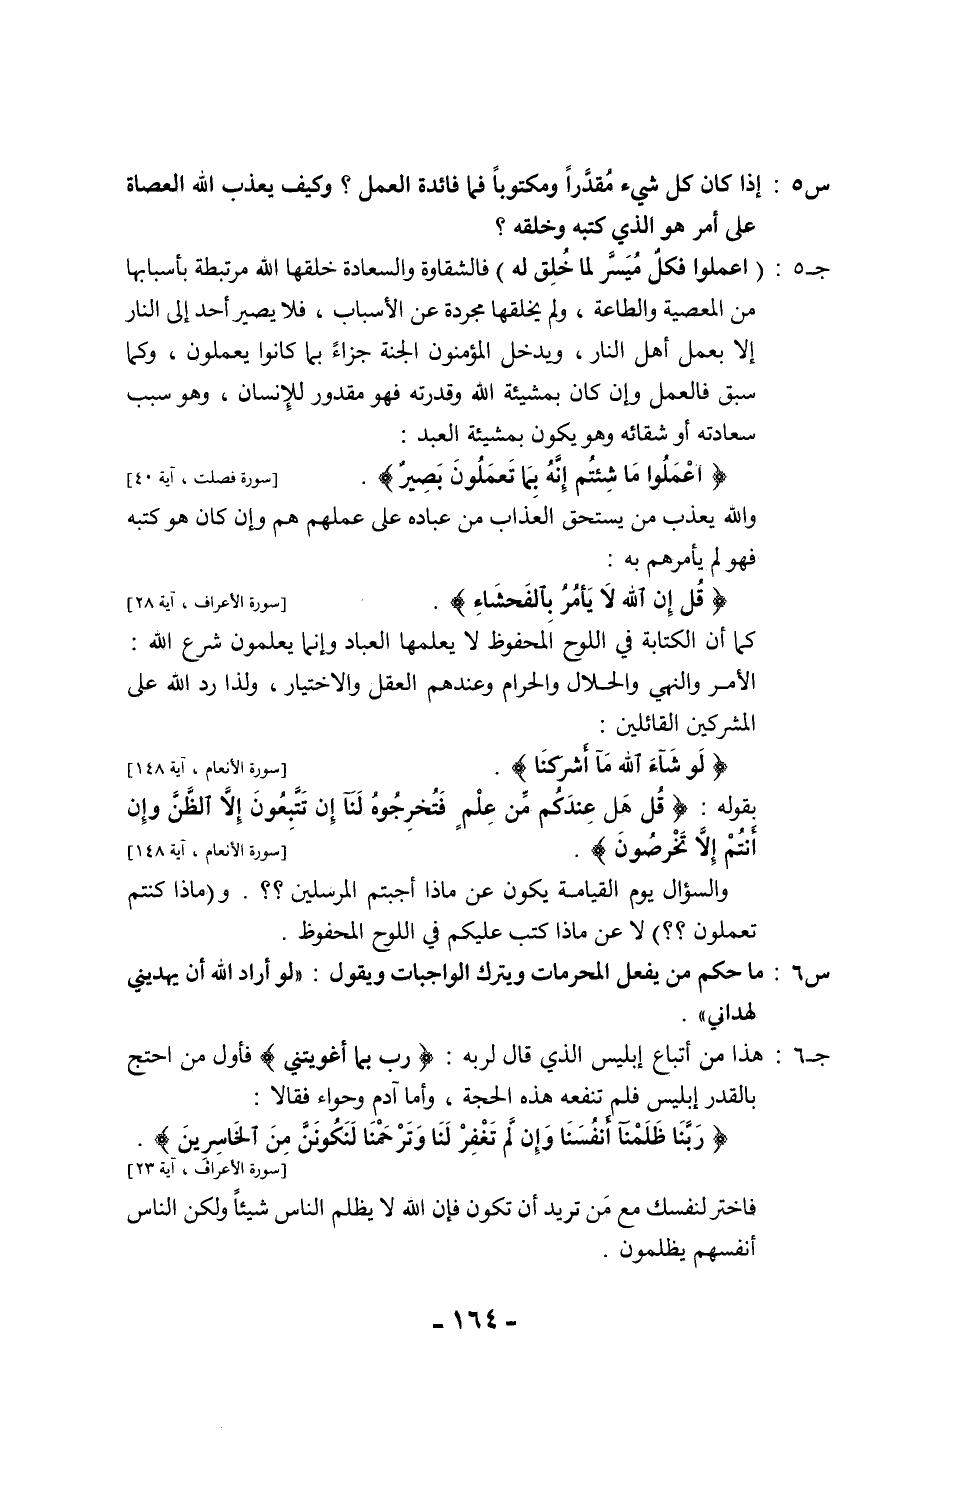 س٥ : إذا كان كل شيء مُقدَّراً ومكتوباً فما فائدة العمل ؟ وكيف يعذب الله العصاة
على أمر هو الذي كتبه وخلقه ؟
جـ٥ : ( اعملوا فكلٌ مُيَسَّر لما خُلِق له ) فالشقاوة والسعادة خلقها الله مرتبطة بأسبابها
من المعصية والطاعة ، ولم يخلقها مجردة عن الأسباب ، فلا يصير أحد إلى النار
إلا بعمل أهل النار ، ويدخل المؤمنون الجنة جزاءً بما كانوا يعملون ، وكما
سبق فالعمل وإن كان بمشيئة الله وقدرته فهو مقدور للإنسان ، وهو سبب
سعادته أو شقائه وهو يكون بمشيئة العبد :
﴿ اعْمَلُوا مَا شِئتُم إِنَّهُ بِمَا تَعمَلُونَ بَصِيرٌ ﴾ . [سورة فصلت ، آية ٤٠]
والله يعذب من يستحق العذاب من عباده على عملهم هم وإن كان هو كتبه
فهو لم يأمرهم به :
﴿ قُل إِن ٱلله لَا يَأمُرُ بِٱلفَحشَاءِ ﴾ . [سورة الأعراف ، آية ٢٨]
كما أن الكتابة في اللوح المحفوظ لا يعلمها العباد وإنما يعلمون شرع الله :
الأمـر والنهي والحـلال والحرام وعندهم العقل والاختيار ، ولذا رد الله على
المشركين القائلين :
﴿ لَو شَآءَ ٱلله مَآ أَشركنَا ﴾ . [سورة الأنعام ، آية ١٤٨]
بقوله : ﴿ قُل هَل عِندَكُم مِّن عِلْمٍ فَتُخرِجُوهُ لَنَآ إِن تَتَّبِعُونَ إِلَّا ٱلظَّنَّ وإِن
أَنتُمْ إِلَّا تَخْرصُونَ ﴾ . [سورة الأنعام ، آية ١٤٨]
والسؤال يوم القيامـة يكون عن ماذا أجبتم المرسلين ؟؟ . و(ماذا كنتم
تعملون ؟؟) لا عن ماذا كتب عليكم في اللوح المحفوظ .
س٦ : ما حكم من يفعل المحرمات ويترك الواجبات ويقول : «لو أراد الله أن يهديني
لهداني» .
جـ٦ : هذا من أتباع إبليس الذي قال لربه : ﴿ رب بما أغويتني ﴾ فأول من احتج
بالقدر إبليس فلم تنفعه هذه الحجة ، وأما آدم وحواء فقالا :
﴿ رَبَّنَا ظَلَمْنَآ أَنفُسَنَا وَإِن لَّم تَغْفِرْ لَنَا وَتَرْحَمْنَا لَنَكُونَنَّ مِنَ ٱلخَاسِرِينَ ﴾ .
[سورة الأعراف ، آية ٢٣]
فاختر لنفسك مع مَن تريد أن تكون فإن الله لا يظلم الناس شيئاً ولكن الناس
أنفسهم يظلمون .
- ١٦٤ -